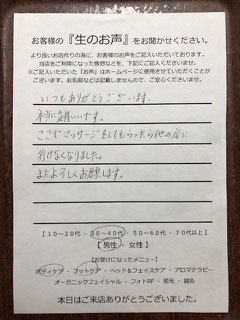 お客様の『生のお声』をお聞かせください。
より良いお店作りの為に、お客様のお声をご記入いただいております。
当店をご利用になった感想などを、下記にご記入くださいませ。
※ご記入いただいた『お声』はホームページに使用させていただくことが
ございます。お名前などは記載しませんので、ご安心くださいませ。
いつもありがとうございます。
本当に気持いいです。
ここでマッサージをしてもらったら他の店に
行けなくなりました。
またよろしくお願します。
【10～20代・30～40代・50～60代・70代以上】
【男性・女性】
【お受けになったメニュー】
ボディケア・フットケア・ヘッド&フェイスケア・アロマテラピー
オーガニックフェイシャル・フォトRF・脱毛・鍼灸
本日はご来店ありがとうございました。